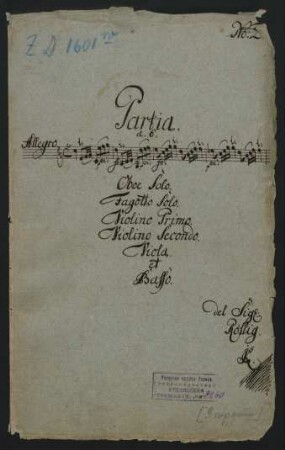 No: 2
Z D 1601
Partia.
a. 6.
Allegro
Oboe Solo.
Fagotto Solo.
Violino Primo.
Violino Secondo.
Viola.
et
Basso.
del Sigr
Röllig.